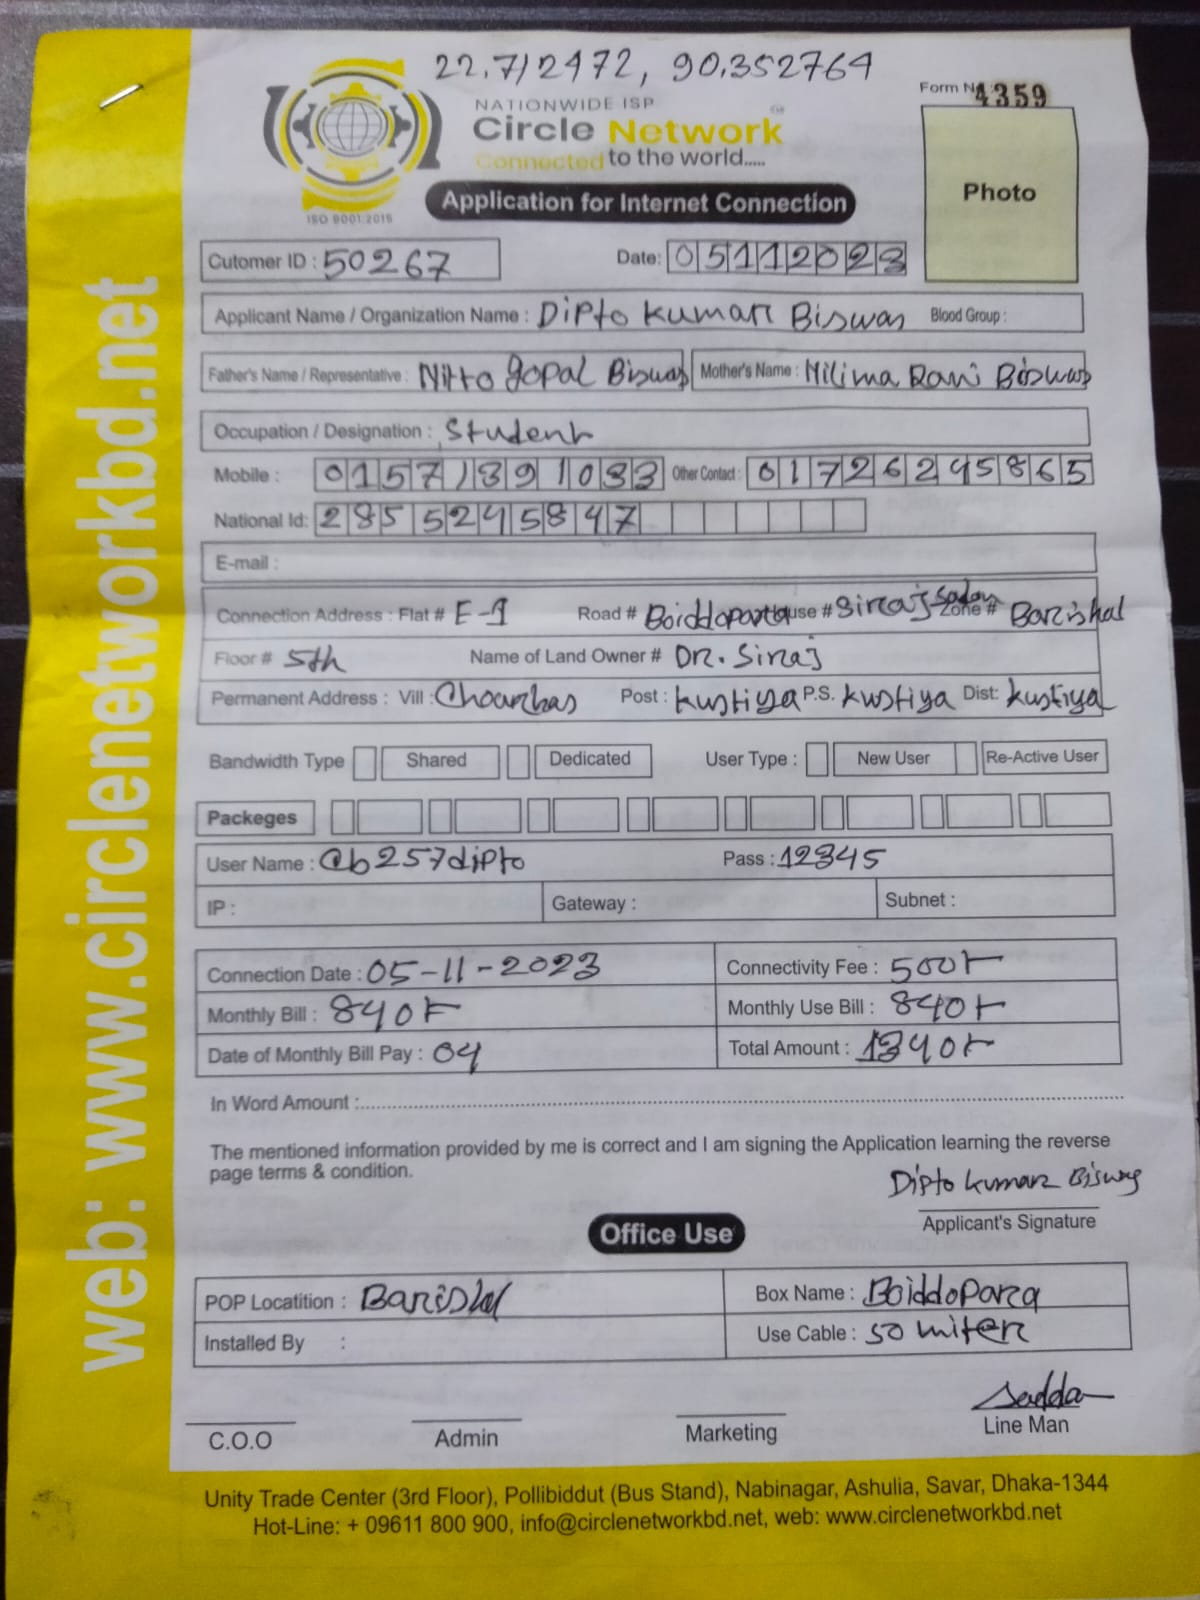 22.712472, 90.352764
NATIONWIDE ISP
Circle Network
Connected to the world.....
ISO 9001:2015
Form No 4359
Photo
Application for Internet Connection
Cutomer ID : 50267 Date: 05112023
Applicant Name / Organization Name : Dipto Kumar Biswas Blood Group :
Father's Name / Representative : Nitto Gopal Biswas Mother's Name : Nilima Rani Biswas
Occupation / Designation : Student
Mobile : 01571391033 Other Contact : 01726245865
National Id: 2855245847
E-mail :
Connection Address : Flat # E-1 Road # Boiddopara House # Siraj Sadan Zone # Barishal
Floor # 5th Name of Land Owner # Dr. Siraj
Permanent Address : Vill : Post : Kustiya P.S. Kustiya Dist: Kustiya
Bandwidth Type Shared Dedicated User Type : New User Re-Active User
Packeges
User Name : @b257dipto Pass : 12345
IP : Gateway : Subnet :
Connection Date : 05-11-2023 Connectivity Fee : 500/-
Monthly Bill : 840/- Monthly Use Bill : 840/-
Date of Monthly Bill Pay : 04 Total Amount : 1340/-
In Word Amount :
The mentioned information provided by me is correct and I am signing the Application learning the reverse
page terms & condition.
Dipto Kumar Biswas
Applicant's Signature
Office Use
POP Locatition : Barishal Box Name : Boiddopara
Installed By : Use Cable : 50 miter
Sadda
C.O.O Admin Marketing Line Man
Unity Trade Center (3rd Floor), Pollibiddut (Bus Stand), Nabinagar, Ashulia, Savar, Dhaka-1344
Hot-Line: + 09611 800 900, info@circlenetworkbd.net, web: www.circlenetworkbd.net
web: www.circlenetworkbd.net